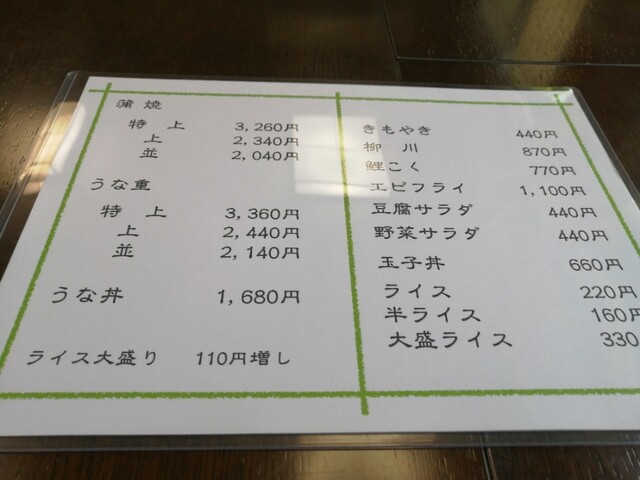 蒲焼
特上 3,260円
上 2,340円
並 2,040円
うな重
特上 3,360円
上 2,440円
並 2,140円
うな丼 1,680円
ライス大盛り 110円増し
きもやき 440円
柳川 870円
鯉こく 770円
エビフライ 1,100円
豆腐サラダ 440円
野菜サラダ 440円
玉子丼 660円
ライス 220円
半ライス 160円
大盛ライス 330